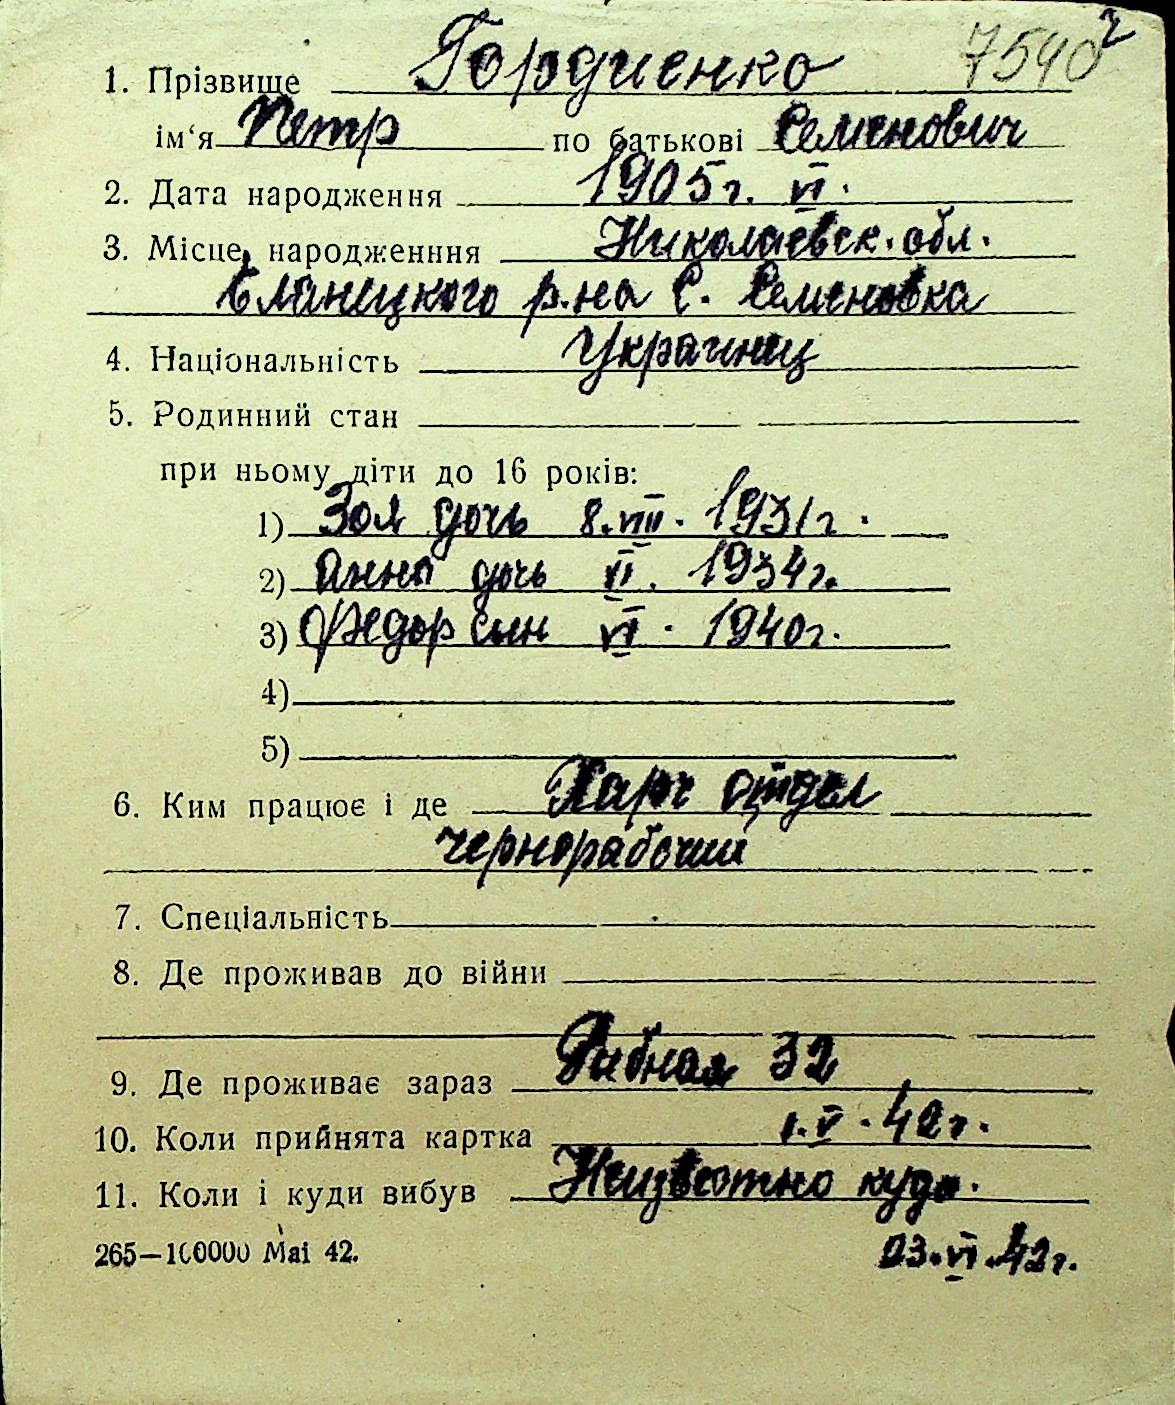 7540 ч
1. Прізвище Гордиенко
ім‘я Петр по батькові Семенович
2. Дата народження 1905 г. VI.
3. Місце народженння Николаевск. обл.
Еланецкого р-на С. Семеновка
4. Національність Украинец
5. Родинний стан
при ньому діти до 16 років:
1) Зоя дочь 8.VIII. 1931 г.
2) Анна дочь VI. 1934 г.
3) Федор сын VI. 1940 г.
4)
5)
6. Ким працює і де Харч отдел
чернорабочий
7. Спеціальність
8. Де проживав до війни
9. Де проживає зараз Рибная 32
10. Коли прийнята картка 1.V.42 г.
11. Коли і куди вибув Неизвестно куда.
265—100000 Маі 42. 23.VI.42 г.